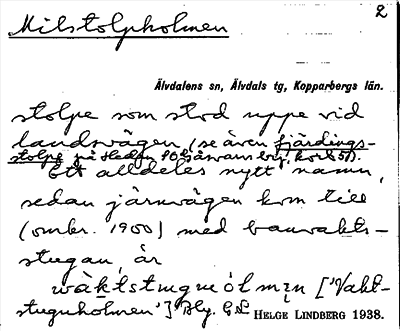 2
Milstolpholmen
Älvdalens sn, Älvdals tg, Kopparbergs län.
stolpe som stod uppe vid
landsvägen (se även fjärdings-
stolpe på Heden
Ett alldeles nytt namn,
sedan järnvägen kom till
(omkr. 1900) med banvakts-
stugan, är
['Vakt-
stuguholmen']
HELGE LINDBERG 1938.